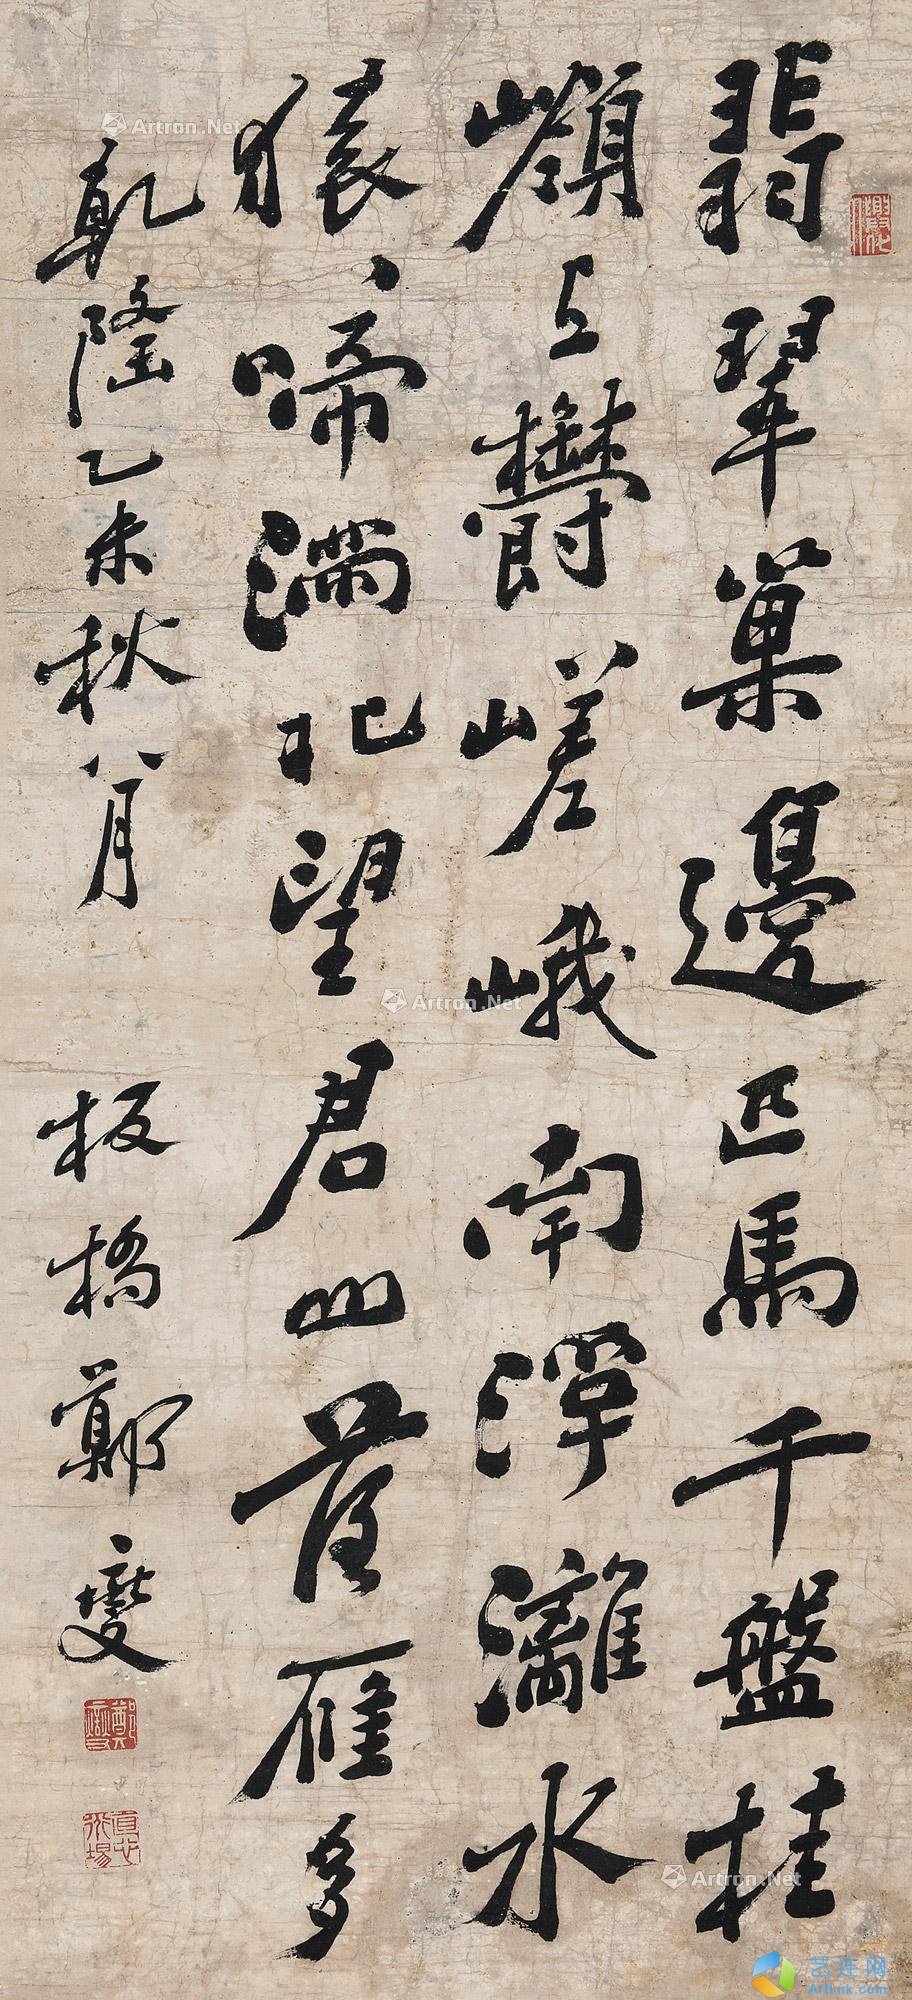 翡翠巢邊匹馬干盤桂
嶺上欝嵯峨南浮灕水
猿、啼滿北望君山落雁多
乾隆乙未秋八月 板橋鄭燮
鄭燮
直心道場
Artron.Net
Artron.Net
Artron.Net
艺连网
Artlink.com